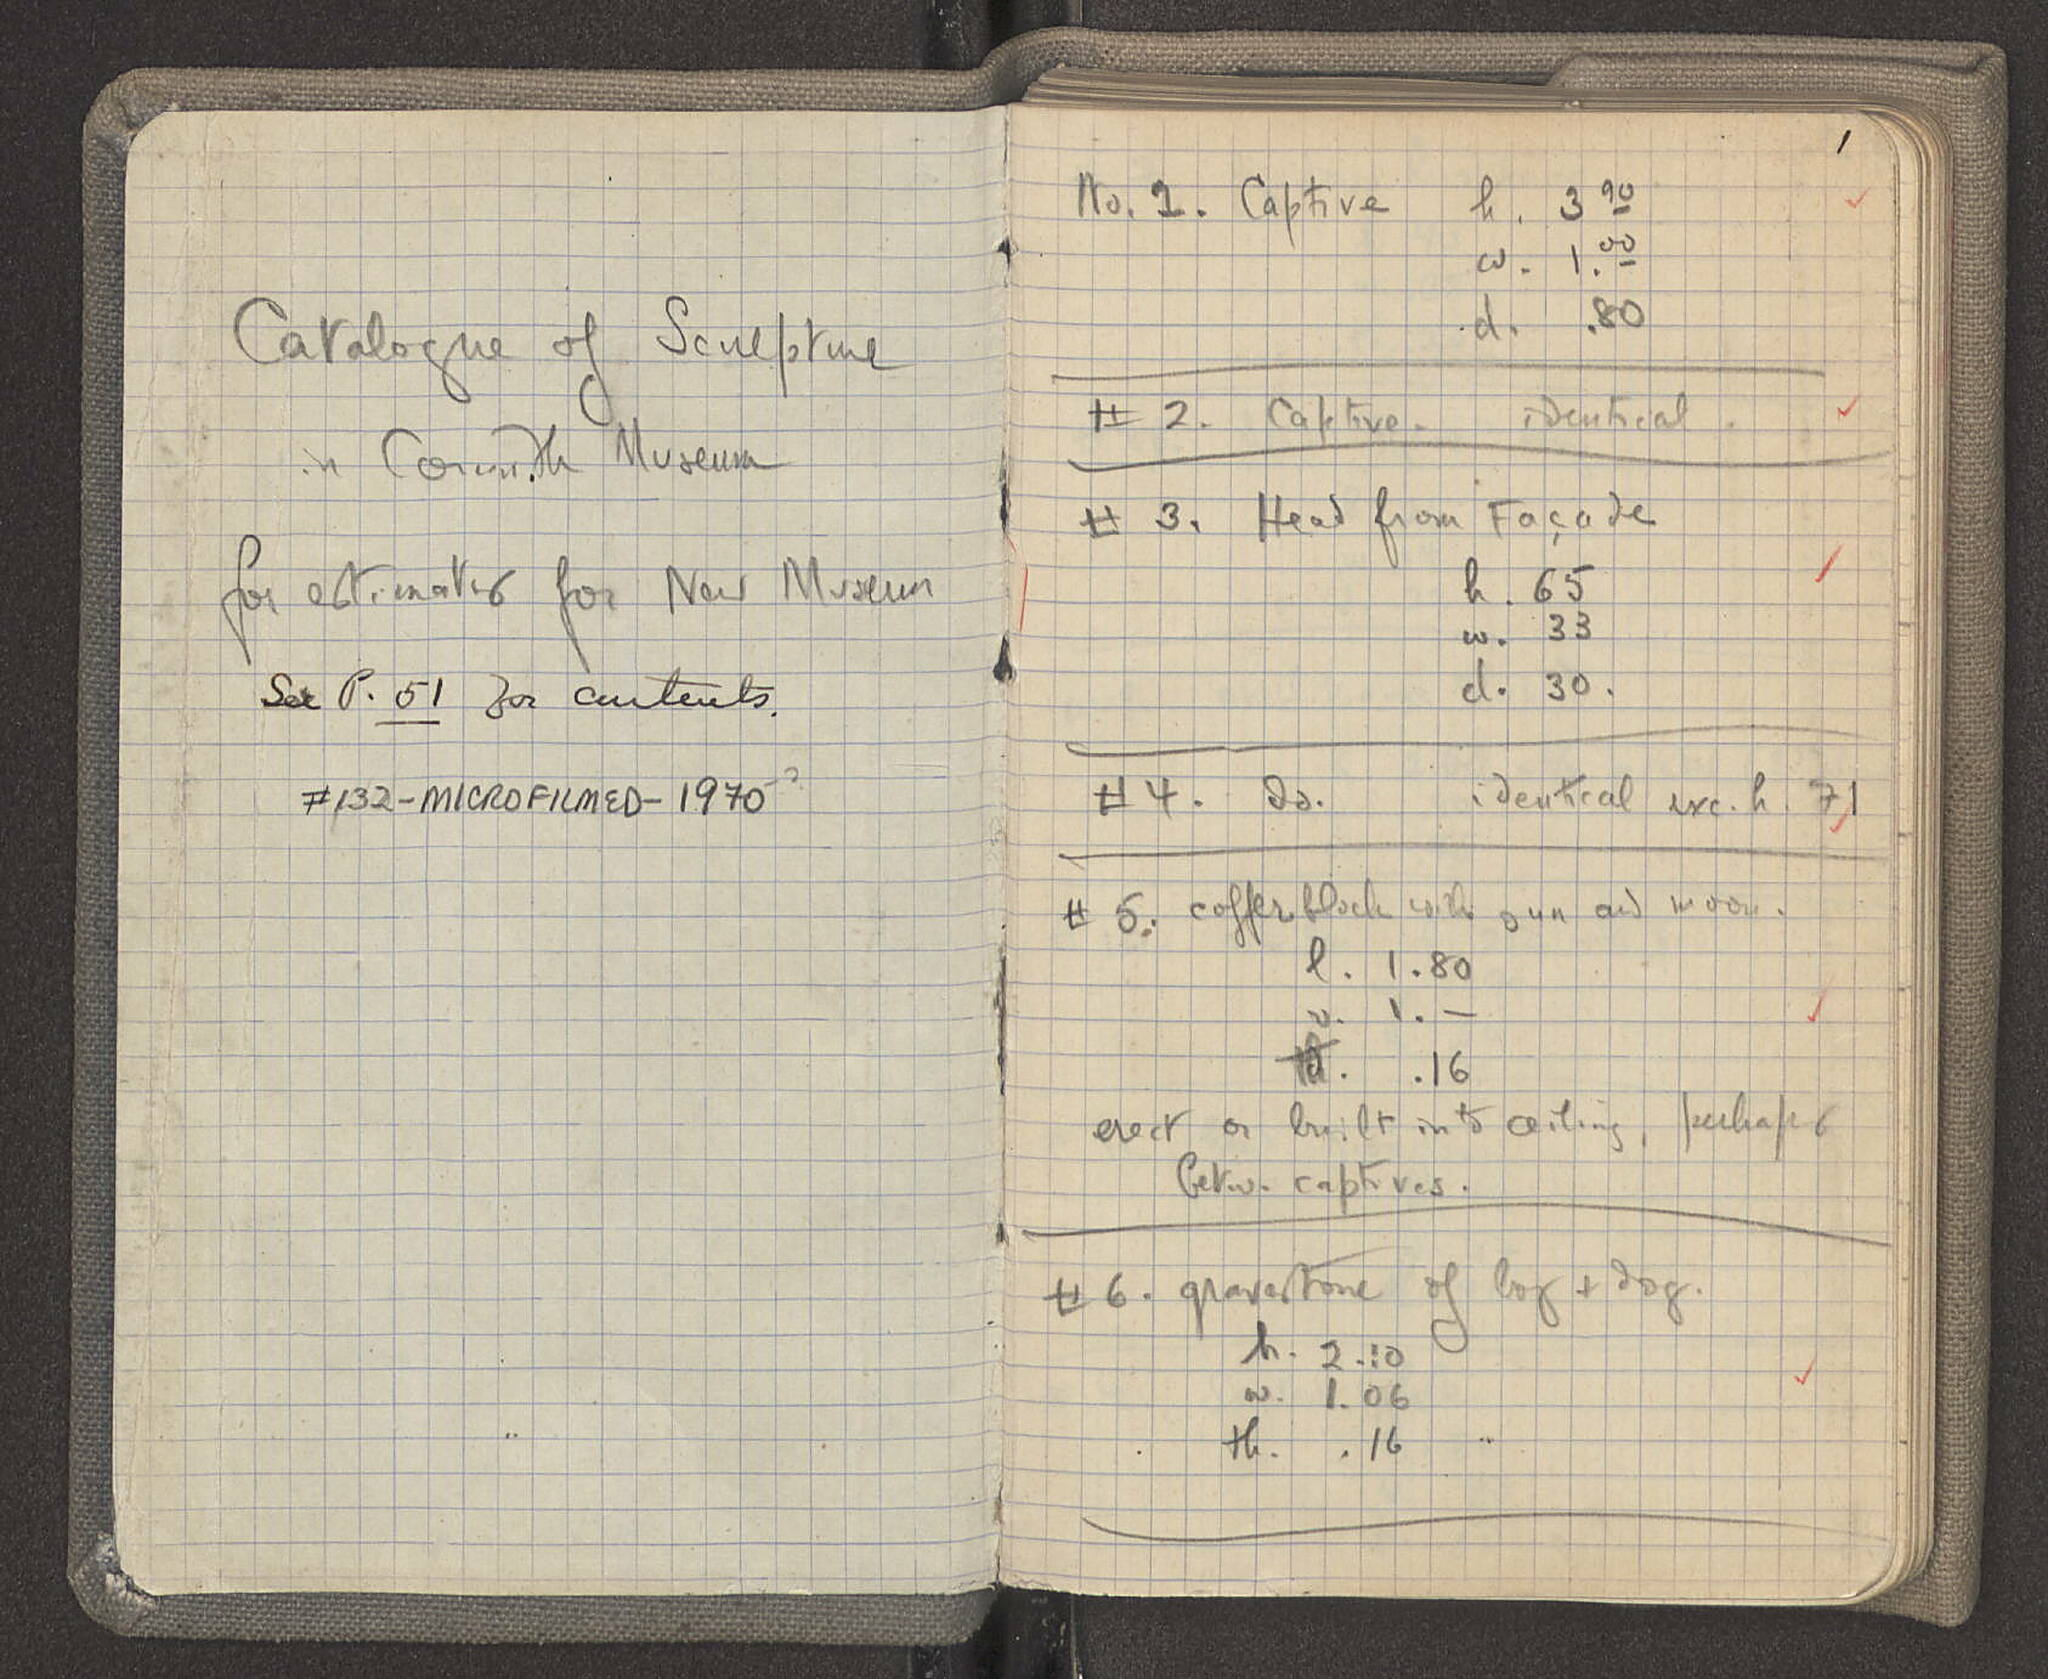 Catalogue of Sculpture
in Corinth Museum
for estimates for New Museum
See P. 51 for contents.
#132-MICROFILMED-1970-?
1
No. 1. Captive h. 3 90
w. 1.00
d. .80
# 2. Captive. identical.
# 3. Head from Façade
h. 65
w. 33
d. 30.
# 4. Do. identical exc. h. 71
# 5. coffer block with sun and moon.
l. 1.80
w. 1. —
.16
erect or built into ceiling, perhaps
betw. captives.
# 6. gravestone of boy + dog.
h. 2.10
w. 1.06
th. .16